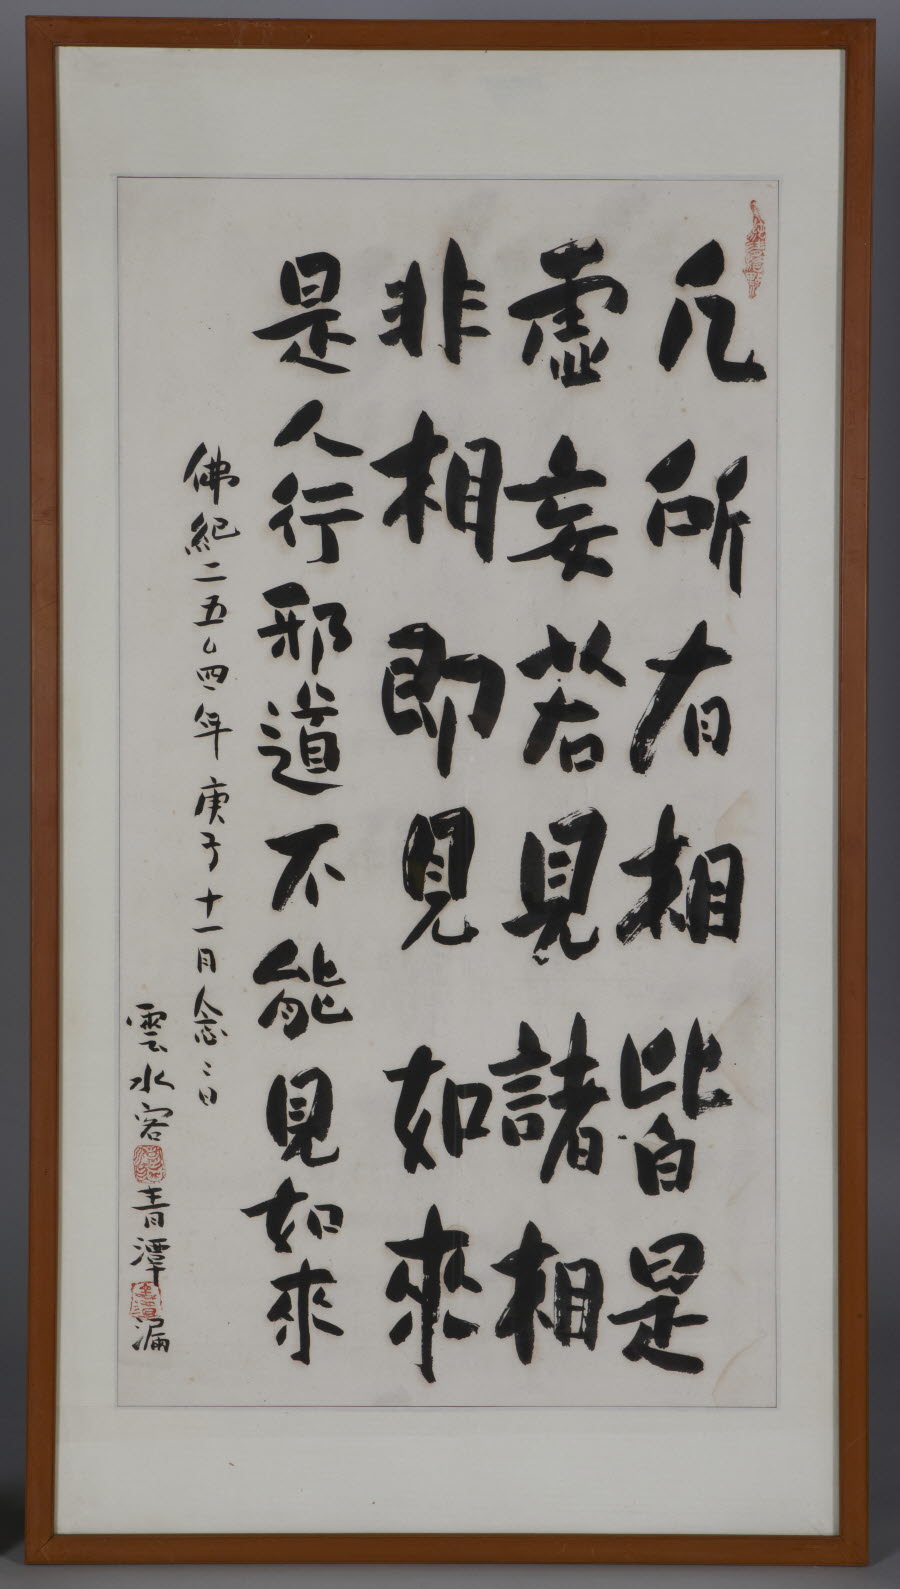 凡所有相皆是
虛妄若見諸相
非相即見如來
是人行邪道不能見如來
佛紀二五〇四年庚子十一月念三日
雲水客青潭